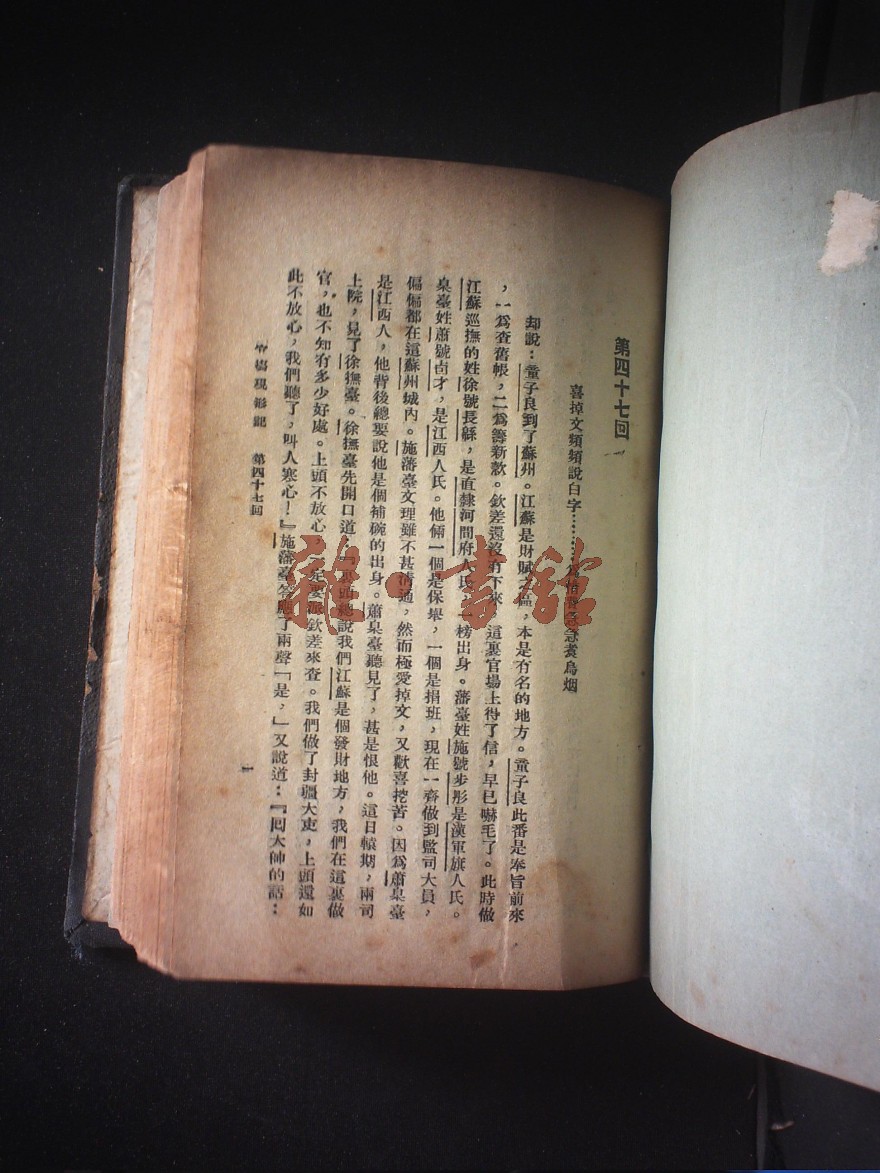 第四十七回
喜掉文頻頻說白字………為惜費急急煮烏烟
却說：童子良到了蘇州。江蘇是財賦之區，本是有名的地方。童子良此番是奉旨前來
，一為查舊帳，二為籌新款。欽差還沒有下來，這裏官場上得了信，早已嚇毛了。此時做
江蘇巡撫的姓徐號長緜，是直隸河間府人氏，一榜出身。藩臺姓施號步彤是漢軍旗人氏。
臬臺姓蕭號卣才，是江西人氏。他倆一個是保舉，一個是捐班，現在一齊做到監司大員，
偏偏都在這蘇州城內。施藩臺文理雖不甚清通，然而極愛掉文，又歡喜挖苦。因為蕭臬臺
是江西人，他背後總要說他是個補碗的出身。蕭臬臺聽見了，甚是恨他。這日轅期，兩司
上院，見了徐撫臺。徐撫臺先開口道：『裏頭總說我們江蘇是個發財地方，我們在這裏做
官，也不知有多少好處。上頭不放心，一定要派欽差來查。我們做了封疆大吏，上頭還如
此不放心，我們聽了，叫人寒心！』施藩臺答應了兩聲「是，」又說道：『回大帥的話：
官場現形記　第四十七回
一
雜·書館